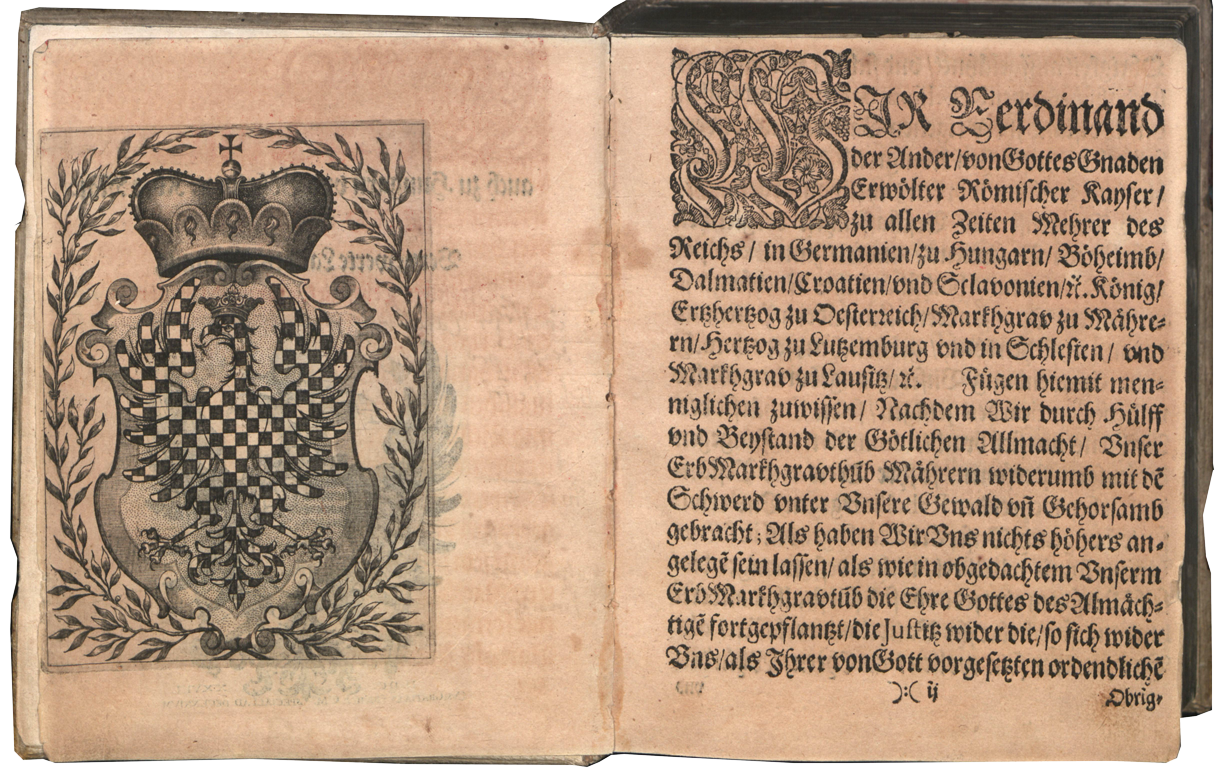 WIR Ferdinand
der Ander/von Gottes Gnaden
Erwölter Römischer Kayser/
zu allen Zeiten Mehrer des
Reichs/ in Germanien/zu Hungarn/ Böheimb/
Dalmatien/Croatien/vnd Sclavonien/ꝛc. König/
Ertzhertzog zu Oesterreich/Markhgrav zu Mähre-
rn/Hertzog zu Lutzemburg vnd in Schlesien/ vnd
Markhgrav zu Lausitz/ꝛc. Fügen hiemit men-
niglichen zuwissen/ Nachdem Wir durch Hülff
vnd Beystand der Götlichen Allmacht/ Vnser
Erb Markhgravthūb Mährern widerumb mit dē
Schwerd vnter Vnsere Gewald vñ Gehorsamb
gebracht; Als haben Wir Vns nichts höhers an-
gelegē sein lassen/ als wie in obgedachtem Vnserm
Erb Markhgravtūb die Ehre Gottes des Almäch-
tigē fortgepflantzt/die Justitz wider die/so sich wider
Vns/als Ihrer von Gott vorgesetzten ordendlichē
):( ij
Obrig-